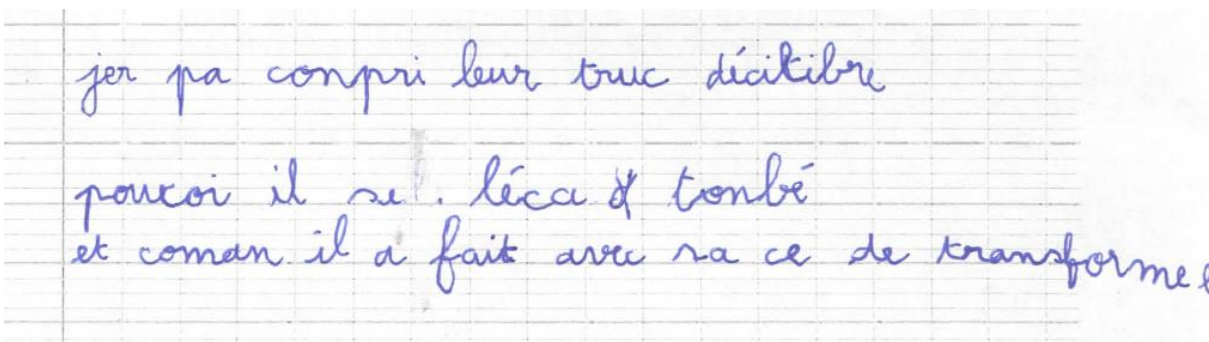 jer pa conpri leur truc décikibre
poucoi il se . léca tonbé
et coman il a fait avec sa ce de transformer